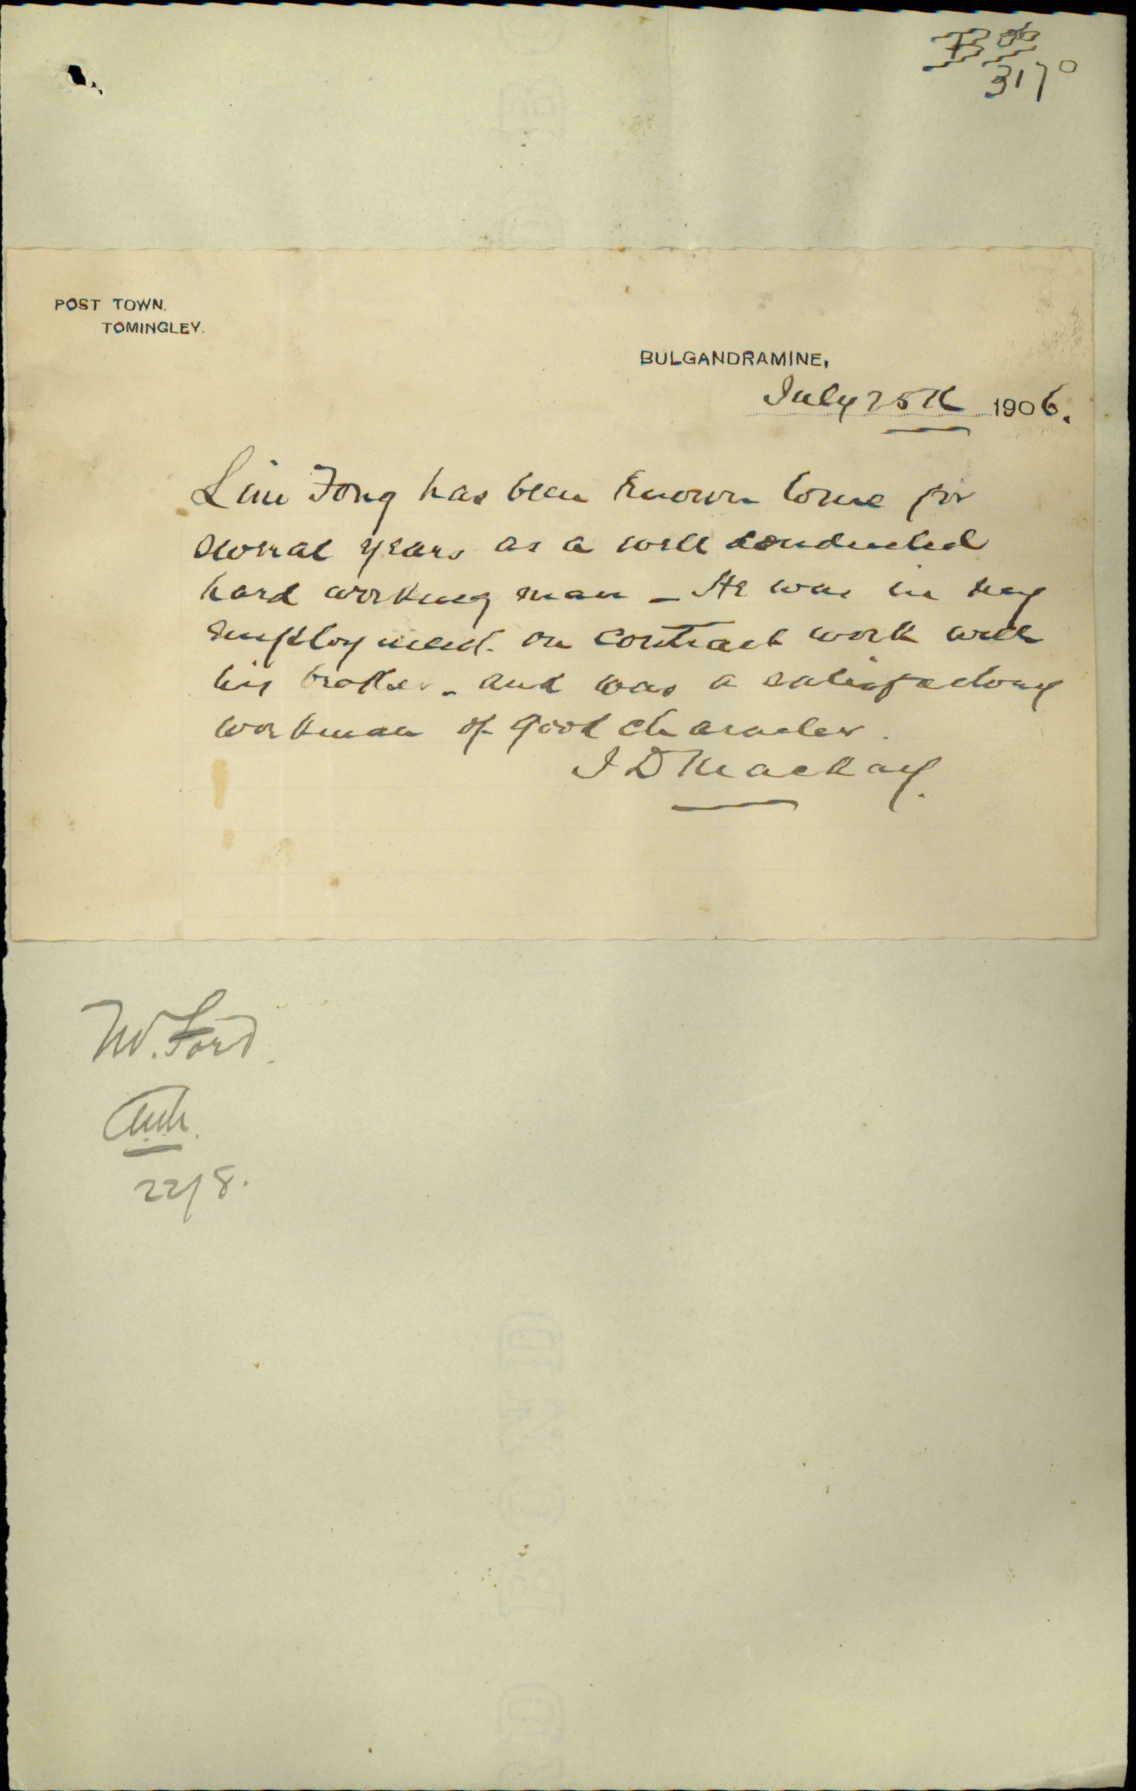 B 06
3170
POST TOWN.
TOMINGLEY.
BULGANDRAMINE,
July 25th 1906.
Lim Fong has been known to me for
several years as a well conducted
hard working man - He was in my
employment on contract work with
his brother - and was a satisfactory
workman of good character.
J D Mackay.
Mr. Ford.
22/8.